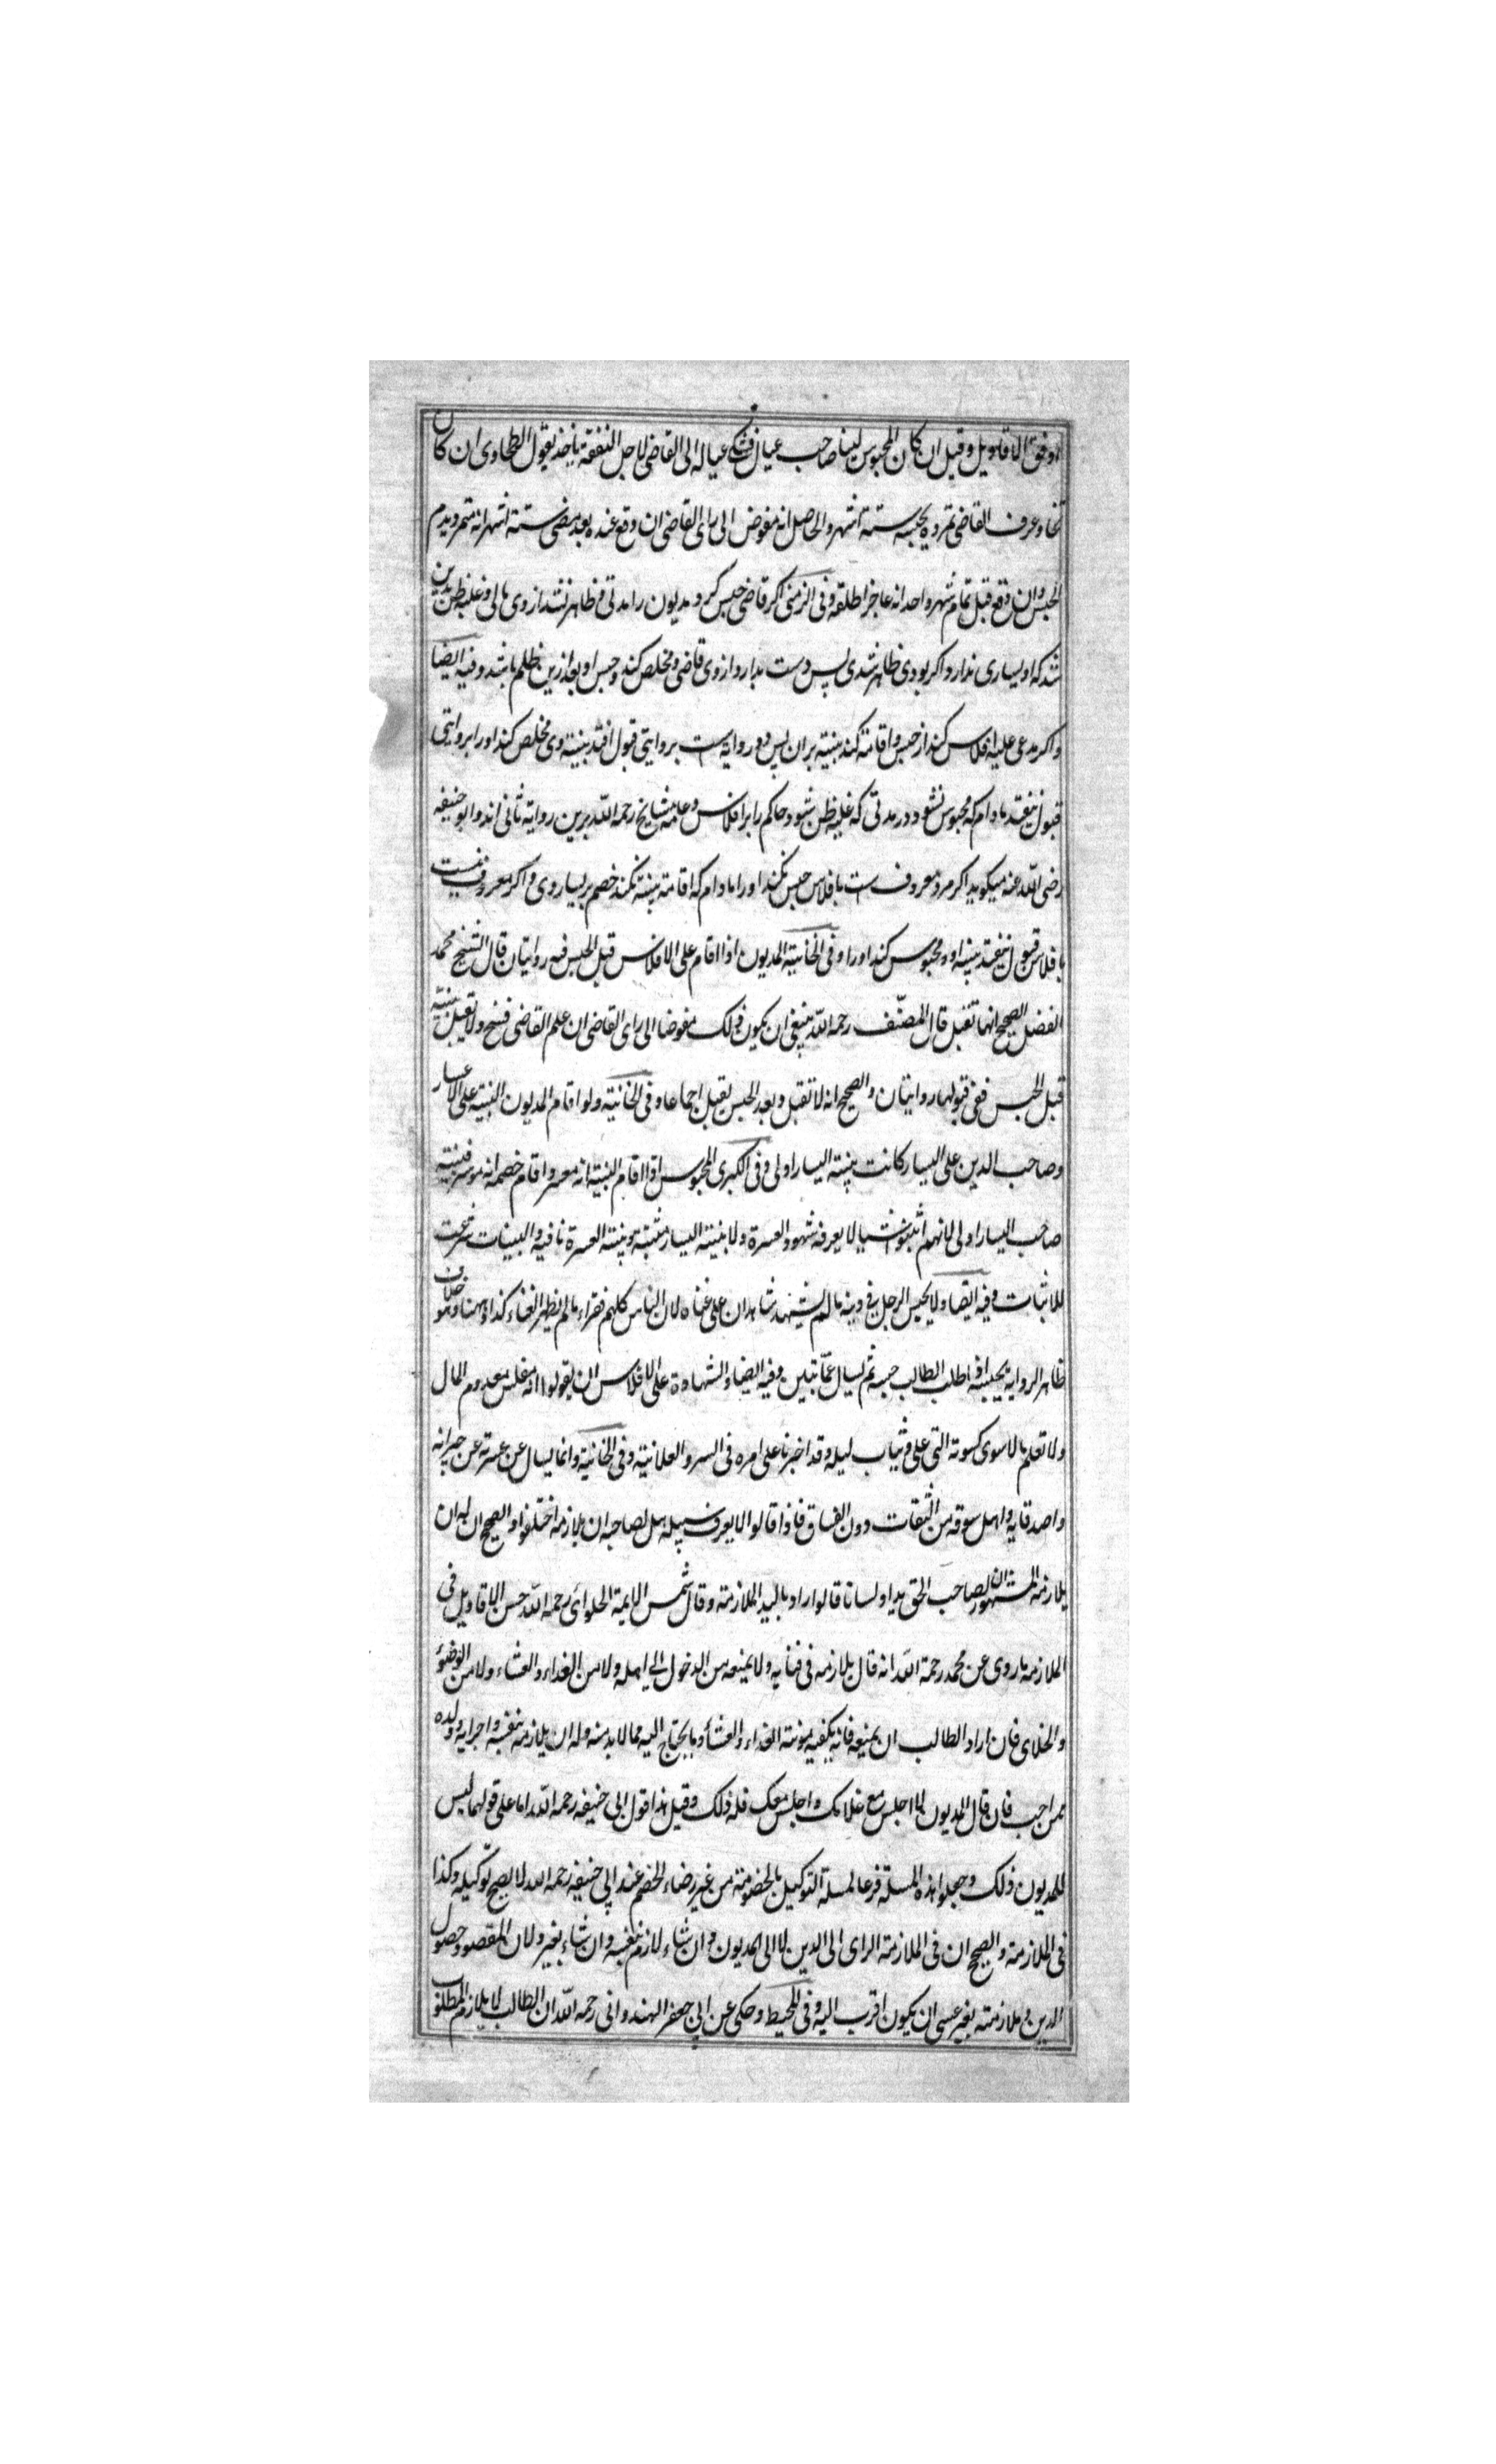 اوفق الاقاويل وقيل ان كان المحبوس لينا صاحب عيال فشكى عياله الى القاضى لاجل النفقة ياخذ بقول الطحاوى ان كان
وعرف القاضى تمرده يحبسه ستة اشهر والحاصل انه مفوض الى راى القاضى ان وقع عنده بعد مضى ستة اشهر انه متمرد يدم
الحبس وان وقع قبل تمام شهر واحد انه عاجز اطلقه وفى اكر قاضى حبس كرد مديون را مدتى وظاهر نشد از وى مالى وغلبه ظن بدين
شد كه او يسارى ندارد واكر بودى ظاهر شدى پس دست بدارد از وى قاضى ومخلص كند وحبس او بعد ازين ظلم باشد وفيه ايضا
واكر مدعى عليه افلاس كند از حبس واقامته كند بينه بران پس دو روايه است بروايتى قبول افتد بينه وى مخلص كند او را بروايتى
قبول نيفتد مادام كه محبوس نشود در مدتى كه غلبه ظن شود حاكم را بر افلاس وعامه مشايخ رحمه الله برين روايه ثانى اند وابو حنيفه
رضى الله عنه ميكويد اكر مرد معروف است بافلاس حبس نكند او را مادام كه اقامته بينه نكند خصم بر يسار وى واكر معروف نيست
بافلاس قبول نيفتد بينه او ومحبوس كند او را وفى الخانية المديون اذا اقام على الافلاس قبل الحبس فيه روايتان قال الشيخ محمد
الفضل الصحيح انها تقبل قال المصنف رحمه الله ينبغى ان يكون ذلك مفوضا الى راى القاضى ان علم القاضى ولا تقبل بينته
قبل الحبس ففى قبولها روايتان والصحيح انه لا تقبل وبعد الحبس يقبل اجماعا وفى الخانية ولو اقام المديون البينة على الاعسار
وصاحب الدين على اليسار كانت بينة اليسار اولى وفى الكبرى المحبوس اذا اقام البينة انه معسر واقام خصمه انه موسر فبينة
صاحب اليسار اولى لانهم اثبتوا شيا لا يعرفه شهود العسرة ولا بينة اليسار مثبتة وبينة العسرة نافية والبينات شرعت
للاثبات وفيه ايضا ولا يحبس الرجل فى دينه مالم يشهد شاهدان على غناه لان الناس كلهم فقراء مالم يظهر الغناء كذا ههنا وهو خلاف
ظاهر الرواية يحبسه اذا طلب الطالب حبسه ثم يسال وفيه ايضا والشهادة على الافلاس ان يقولوا انه مفلس معدوم المال
ولا نعلم مالا سوى كسوته التى عليه وثياب ليله وقد اخبرنا على امره فى السر والعلانية وفى الخانية وانما يسال عن عسرته عن جيرانه
واصدقايه واهل سوقه من الثقات دون الفساق فاذا قالوا لا يعرف سبيله هل لصاحبه ان يلازمه اختلفوا والصحيح ان له ان
يلازمه المشهور ان لصاحب الحق يدا ولسانا قالوا اراد باليد الملازمة وقال شمس الايمة الحلوائى رحمه الله احسن الاقاويل فى
الملازمة ما روى عن محمد رحمة الله انه قال يلازمه فى قيامه ولا يمنعه من الدخول الى اهله ولا من الغداء والعشاء ولا من الوضوء
والخلاى فان اراد الطالب ان يمنعه فانه يكفيه مونة الغداء والعشاء وما يحتاج اليه مما لا بد منه وله ان يلازمه بنفسه واجرايه وولده
ممن احب فان قال المديون لا اجلس مع غلامك واجلس معك فله ذلك وقيل هذا قول ابى حنيفه رحمه الله اما على قولهما ليس
للمديون ذلك وجعلوا هذه المسلة فرعا لمسلة التوكيل بالخصومة من غير رضاء الخصم عند ابى حنيفه رحمه الله لا يصح توكيله وكذا
فى الملازمة والصحيح ان فى الملازمة الراى الى الدين لا الى المديون وان شاء لازم بنفسه وان شاء بغيره لان المقصود حصول
الدين وملازمته بغيره عسى ان يكون اقرب اليه وفى المحيط وحكى عن ابى جعفر الهندوانى رحمه الله ان الطالب لا يلازم المطلوب